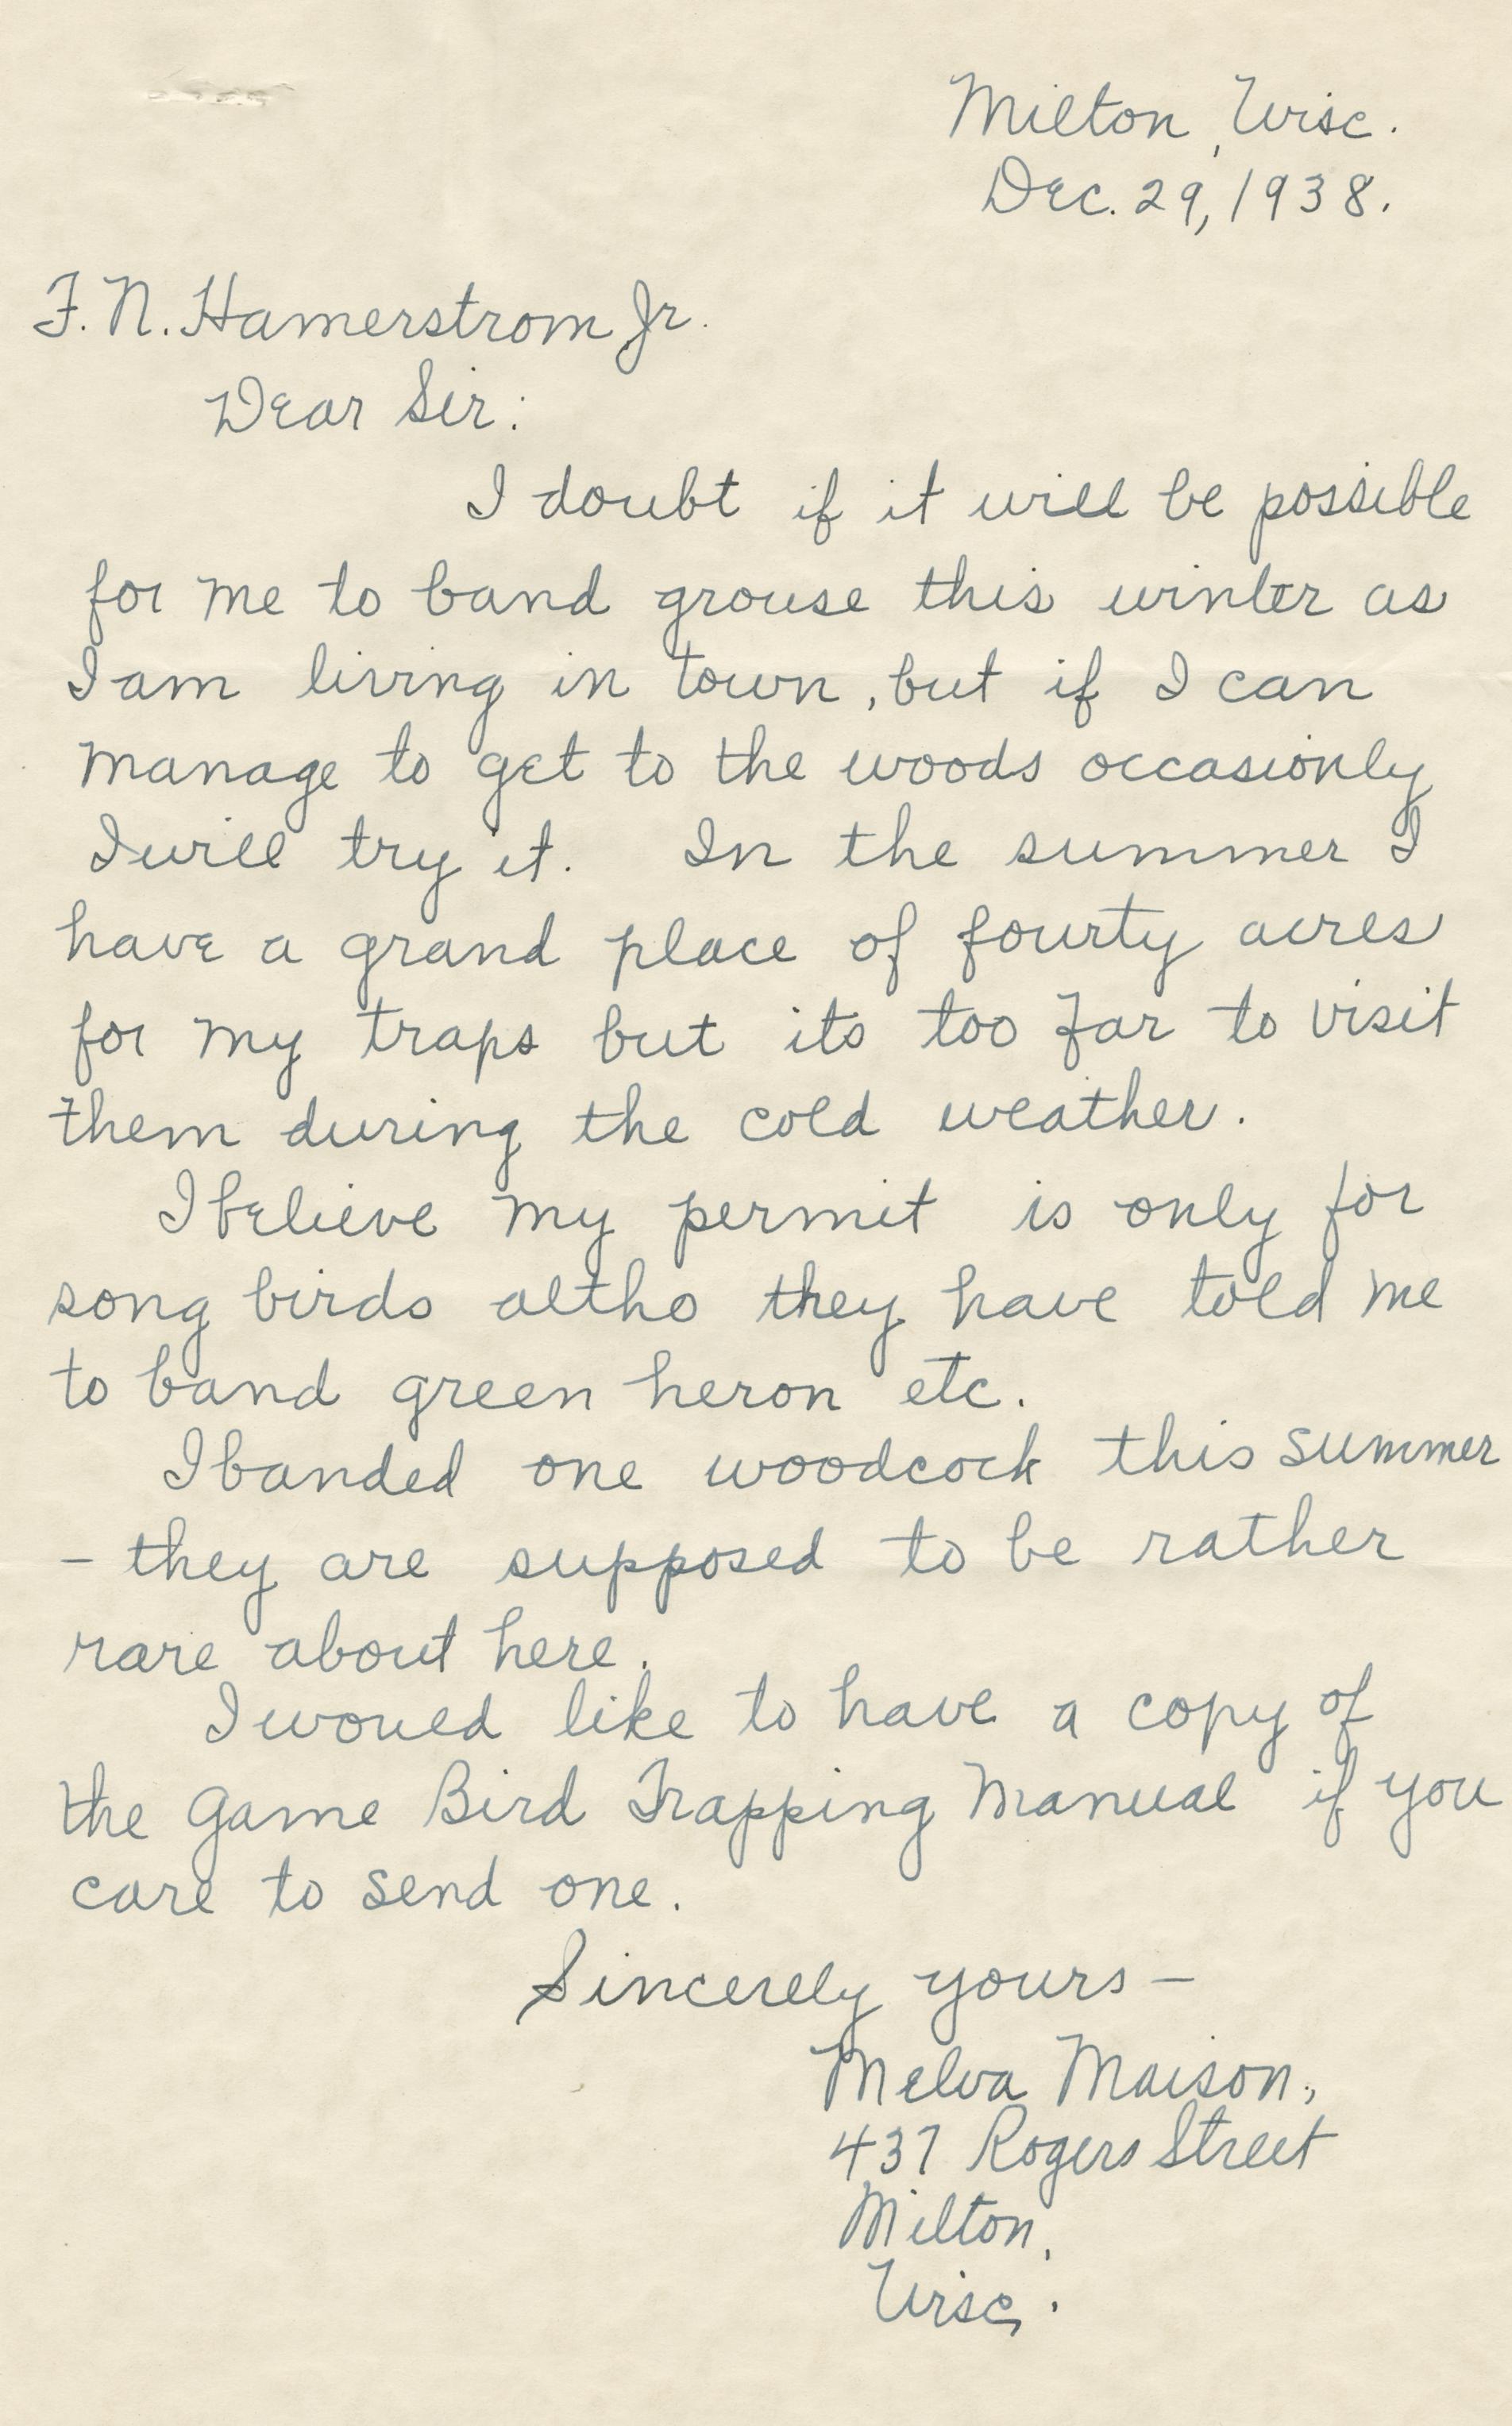 Milton, Wisc.
Dec. 29, 1938.
F. N. Hamerstrom Jr.
Dear Sir:
I doubt if it will be possible
for me to band grouse this winter as
I am living in town, but if I can
manage to get to the woods occasionly
I will try it. In the summer I
have a grand place of fourty acres
for my traps but its too far to visit
them during the cold weather.
I believe my permit is only for
song birds altho they have told me
to band green heron etc.
I banded one woodcock this summer
- they are supposed to be rather
rare about here.
I would like to have a copy of
the Game Bird Trapping Manual if you
care to send one.
Sincerely yours -
Melva Maison,
437 Rogers Street
Milton,
Wisc.